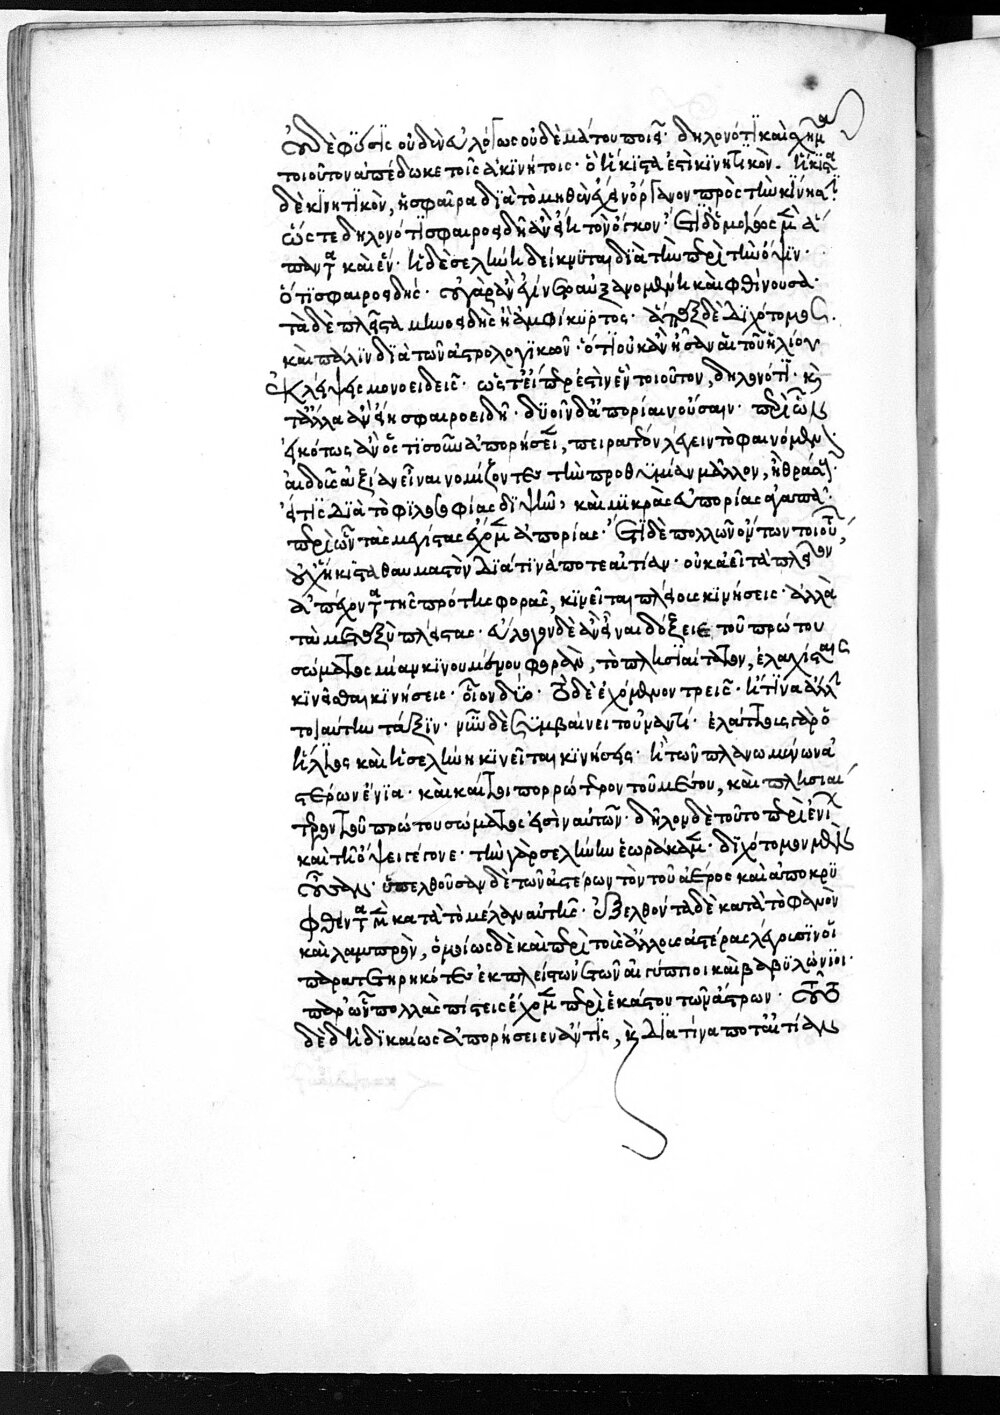 ἡ δὲ φύσις οὐδὲν ἀλόγως οὐδὲ μάτην ποιεῖ· δῆλον ὅτι καὶ σχῆμα
τοιοῦτον ἀπέδωκε τοῖς ἀκινήτοις· ὃ ἥκιστά ἐστι κινητικόν. ἥκιστα
δὲ κινητικὸν, ἡ σφαῖρα διὰ τὸ μηθὲν ἔχειν ὄργανον πρὸς τὴν κίνησιν·
ὥστε δῆλον ὅτι σφαιροειδῆ ἂν εἴη τὸν ὄγκον· ἔτι δ' ὁμοίως μὲν ἅ
παντα καὶ ἕν· ἡ δὲ σελήνη δείκνυται διὰ τῶν περὶ τὴν ὄψιν·
ὅτι σφαιροειδής· οὐ γὰρ ἂν ἐγίνετο αὐξανομένη καὶ φθίνουσα·
τὰ δὲ πλεῖστα μηνοειδὴς ἢ ἀμφίκυρτος· ἅπαξ δὲ διχότομος.
καὶ πάλιν διὰ τῶν ἀστρολογικῶν· ὅτι οὐκ ἂν ἦσαν αἱ τοῦ ἡλίου
ἐκλείψεις μονοειδεῖς· ὥστ' εἴπερ ἐστὶν ἓν τοιοῦτον, δῆλον ὅτι· καὶ
τἆλλα ἂν εἴη σφαιροειδῆ· δυοῖν δ' ἀπορίαιν οὔσαιν· περὶ ὧν
εἰκότως ἂν ὅστισοῦν ἀπορήσειε, πειρατέον λέγειν τὸ φαινόμενον·
αἰδοῦς ἀξίαν εἶναι νομίζοντες τὴν προθυμίαν μᾶλλον, ἢ θράσους·
εἴ τις διὰ τὸ φιλοσοφίας διψῆν, καὶ μικρὰς εὐπορίας ἀγαπᾷ·
περὶ ὧν τὰς μεγίστας ἔχομεν ἀπορίας· ἔστι δὲ πολλῶν ὄντων τοιούτων,
οὐχ ἥκιστα θαυμαστὸν διὰ τίνα ποτ' αἰτίαν· οὐκ ἀεὶ τὰ πλεῖον
ἀπέχοντα τῆς πρώτης φορᾶς, κινεῖται πλείους κινήσεις· ἀλλὰ
τὰ μεταξὺ πλείστας· εὔλογον δὲ ἂν εἶναι δόξειε τοῦ πρώτου
σώματος μίαν κινουμένου φορὰν, τὸ πλησιαίτατον, ἐλαχίστας
κινεῖσθαι κινήσεις· οἷον δύο· τὸ δὲ ἐχόμενον τρεῖς· ἤ τινα ἄλλην
τοιαύτην τάξιν· νῦν δὲ συμβαίνει τοὐναντίον· ἐλάττους γὰρ ὁ
ἥλιος καὶ ἡ σελήνη κινεῖται κινήσεις· ἢ τῶν πλανωμένων ἀ
στέρων ἔνια· καὶ καίτοι πορρώτερον τοῦ μέσου, καὶ πλησιαί
τερον τοῦ πρώτου σώματος εἰσὶν αὐτῶν· δῆλον δὲ τοῦτο περὶ ἐνίων
καὶ τῇ ὄψει γέγονε· τὴν γὰρ σελήνην ἑωράκαμεν· διχότομον μὲν
οὖσαν· ὑπελθοῦσαν δὲ τῶν ἀστέρων τὸν τοῦ ἄρεος καὶ ἀποκρυ
φθέντα μὲν κατὰ τὸ μέλαν αὐτῆς· ἐξελθόντα δὲ κατὰ τὸ φανὸν
καὶ λαμπρὸν, ὁμοίως δὲ καὶ περὶ τοὺς ἄλλους ἀστέρας λέγουσιν οἱ
παρατετηρηκότες ἐκ πλείστων ἐτῶν αἰγύπτιοι καὶ βαβυλώνιοι·
παρ' ὧν πολλὰς πίστεις ἔχομεν περὶ ἑκάστου τῶν ἄστρων· τοῦτό
δὲ δὴ δικαίως ἀπορήσειεν ἄν τις, καὶ διὰ τίνα ποτ' αἰτίαν